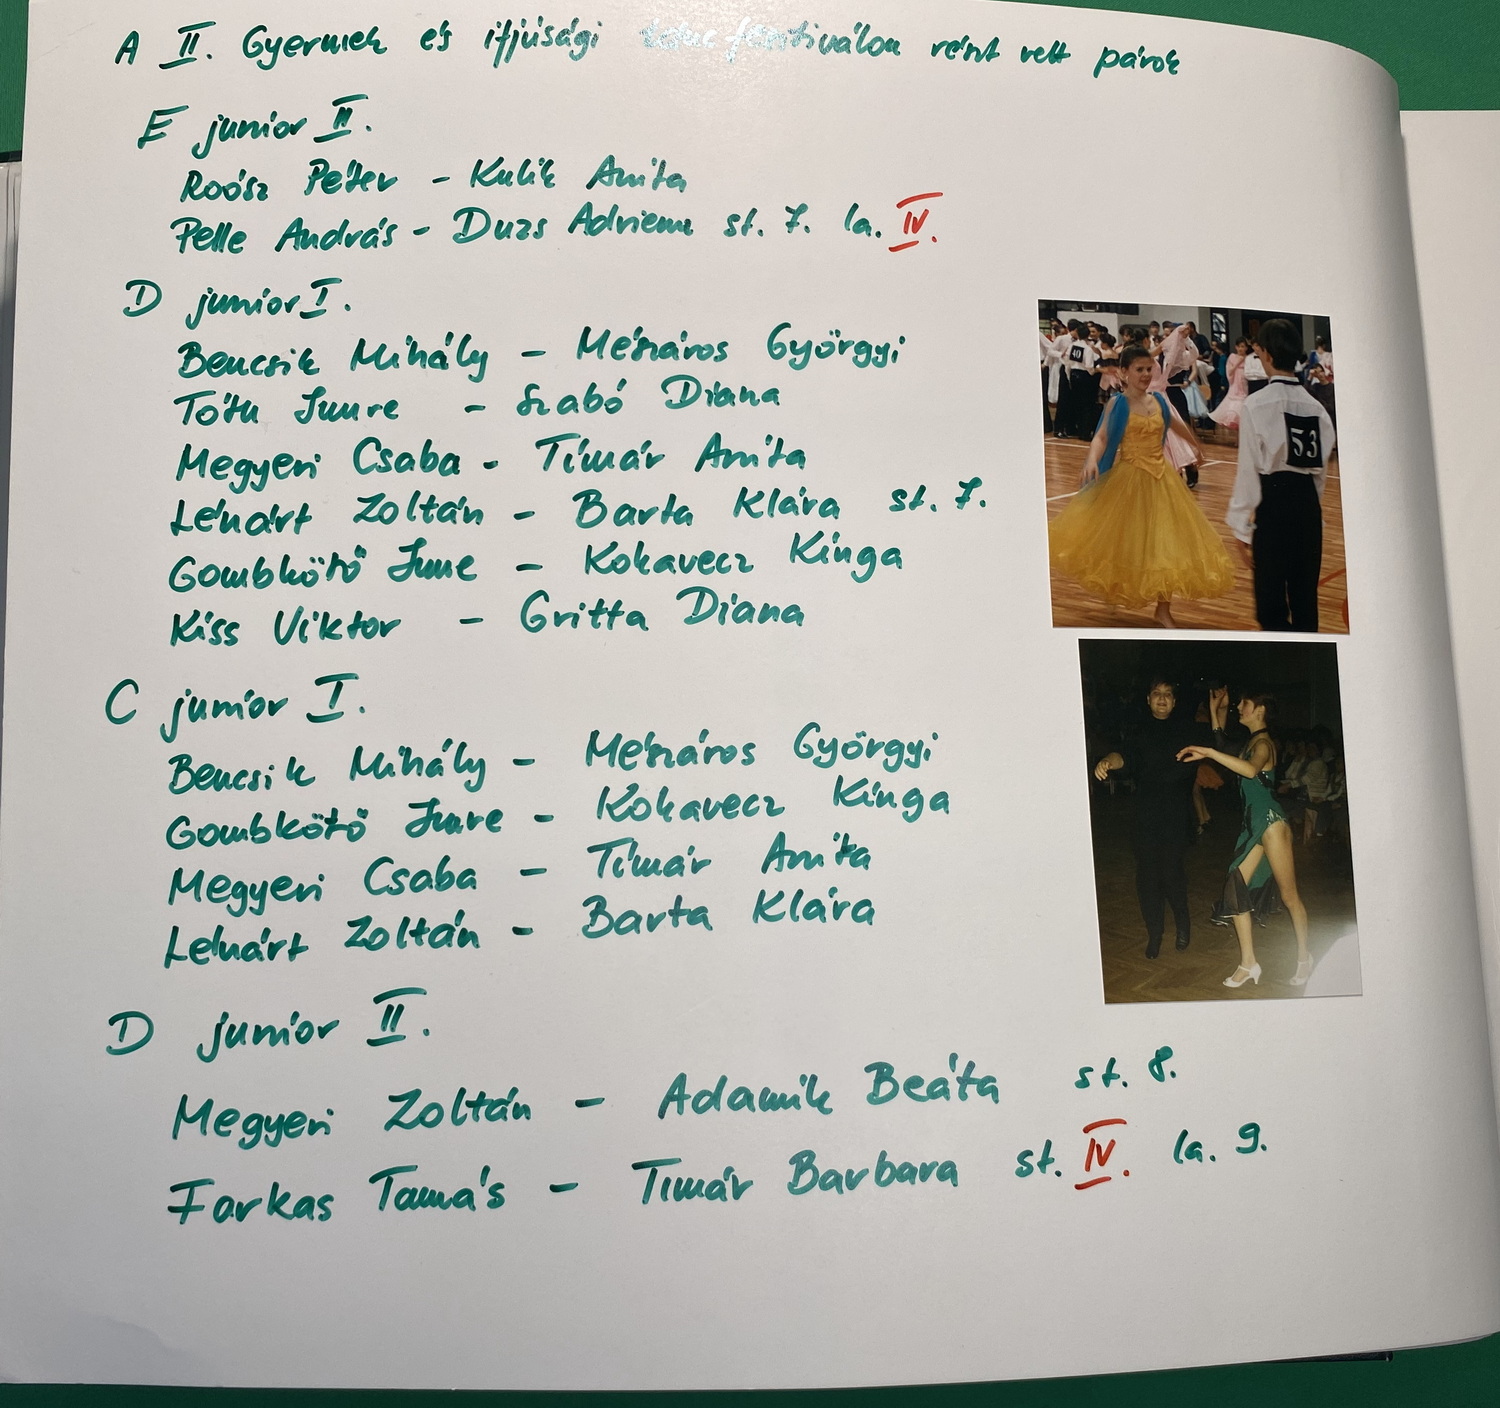 A II. Gyermek és ifjúsági tánc fesztiválon részt vett párok
E junior II.
Roósz Péter - Kulik Anita
Pelle András - Duzs Adrienn st. 7. la. IV.
D junior I.
Bencsik Mihály - Mészáros Györgyi
Tóth Imre - Szabó Diana
Megyeri Csaba - Tímár Anita
Lénárt Zoltán - Barta Klára st. 7.
Gombkötő Imre - Kokavecz Kinga
Kiss Viktor - Gritta Diana
40
53
C junior I.
Bencsik Mihály - Mészáros Györgyi
Gombkötő Imre - Kokavecz Kinga
Megyeri Csaba - Tímár Anita
Lénárt Zoltán - Barta Klára
D junior II.
Megyeri Zoltán - Adamik Beáta st. 8.
Farkas Tamás - Tímár Barbara st. IV. la. 9.